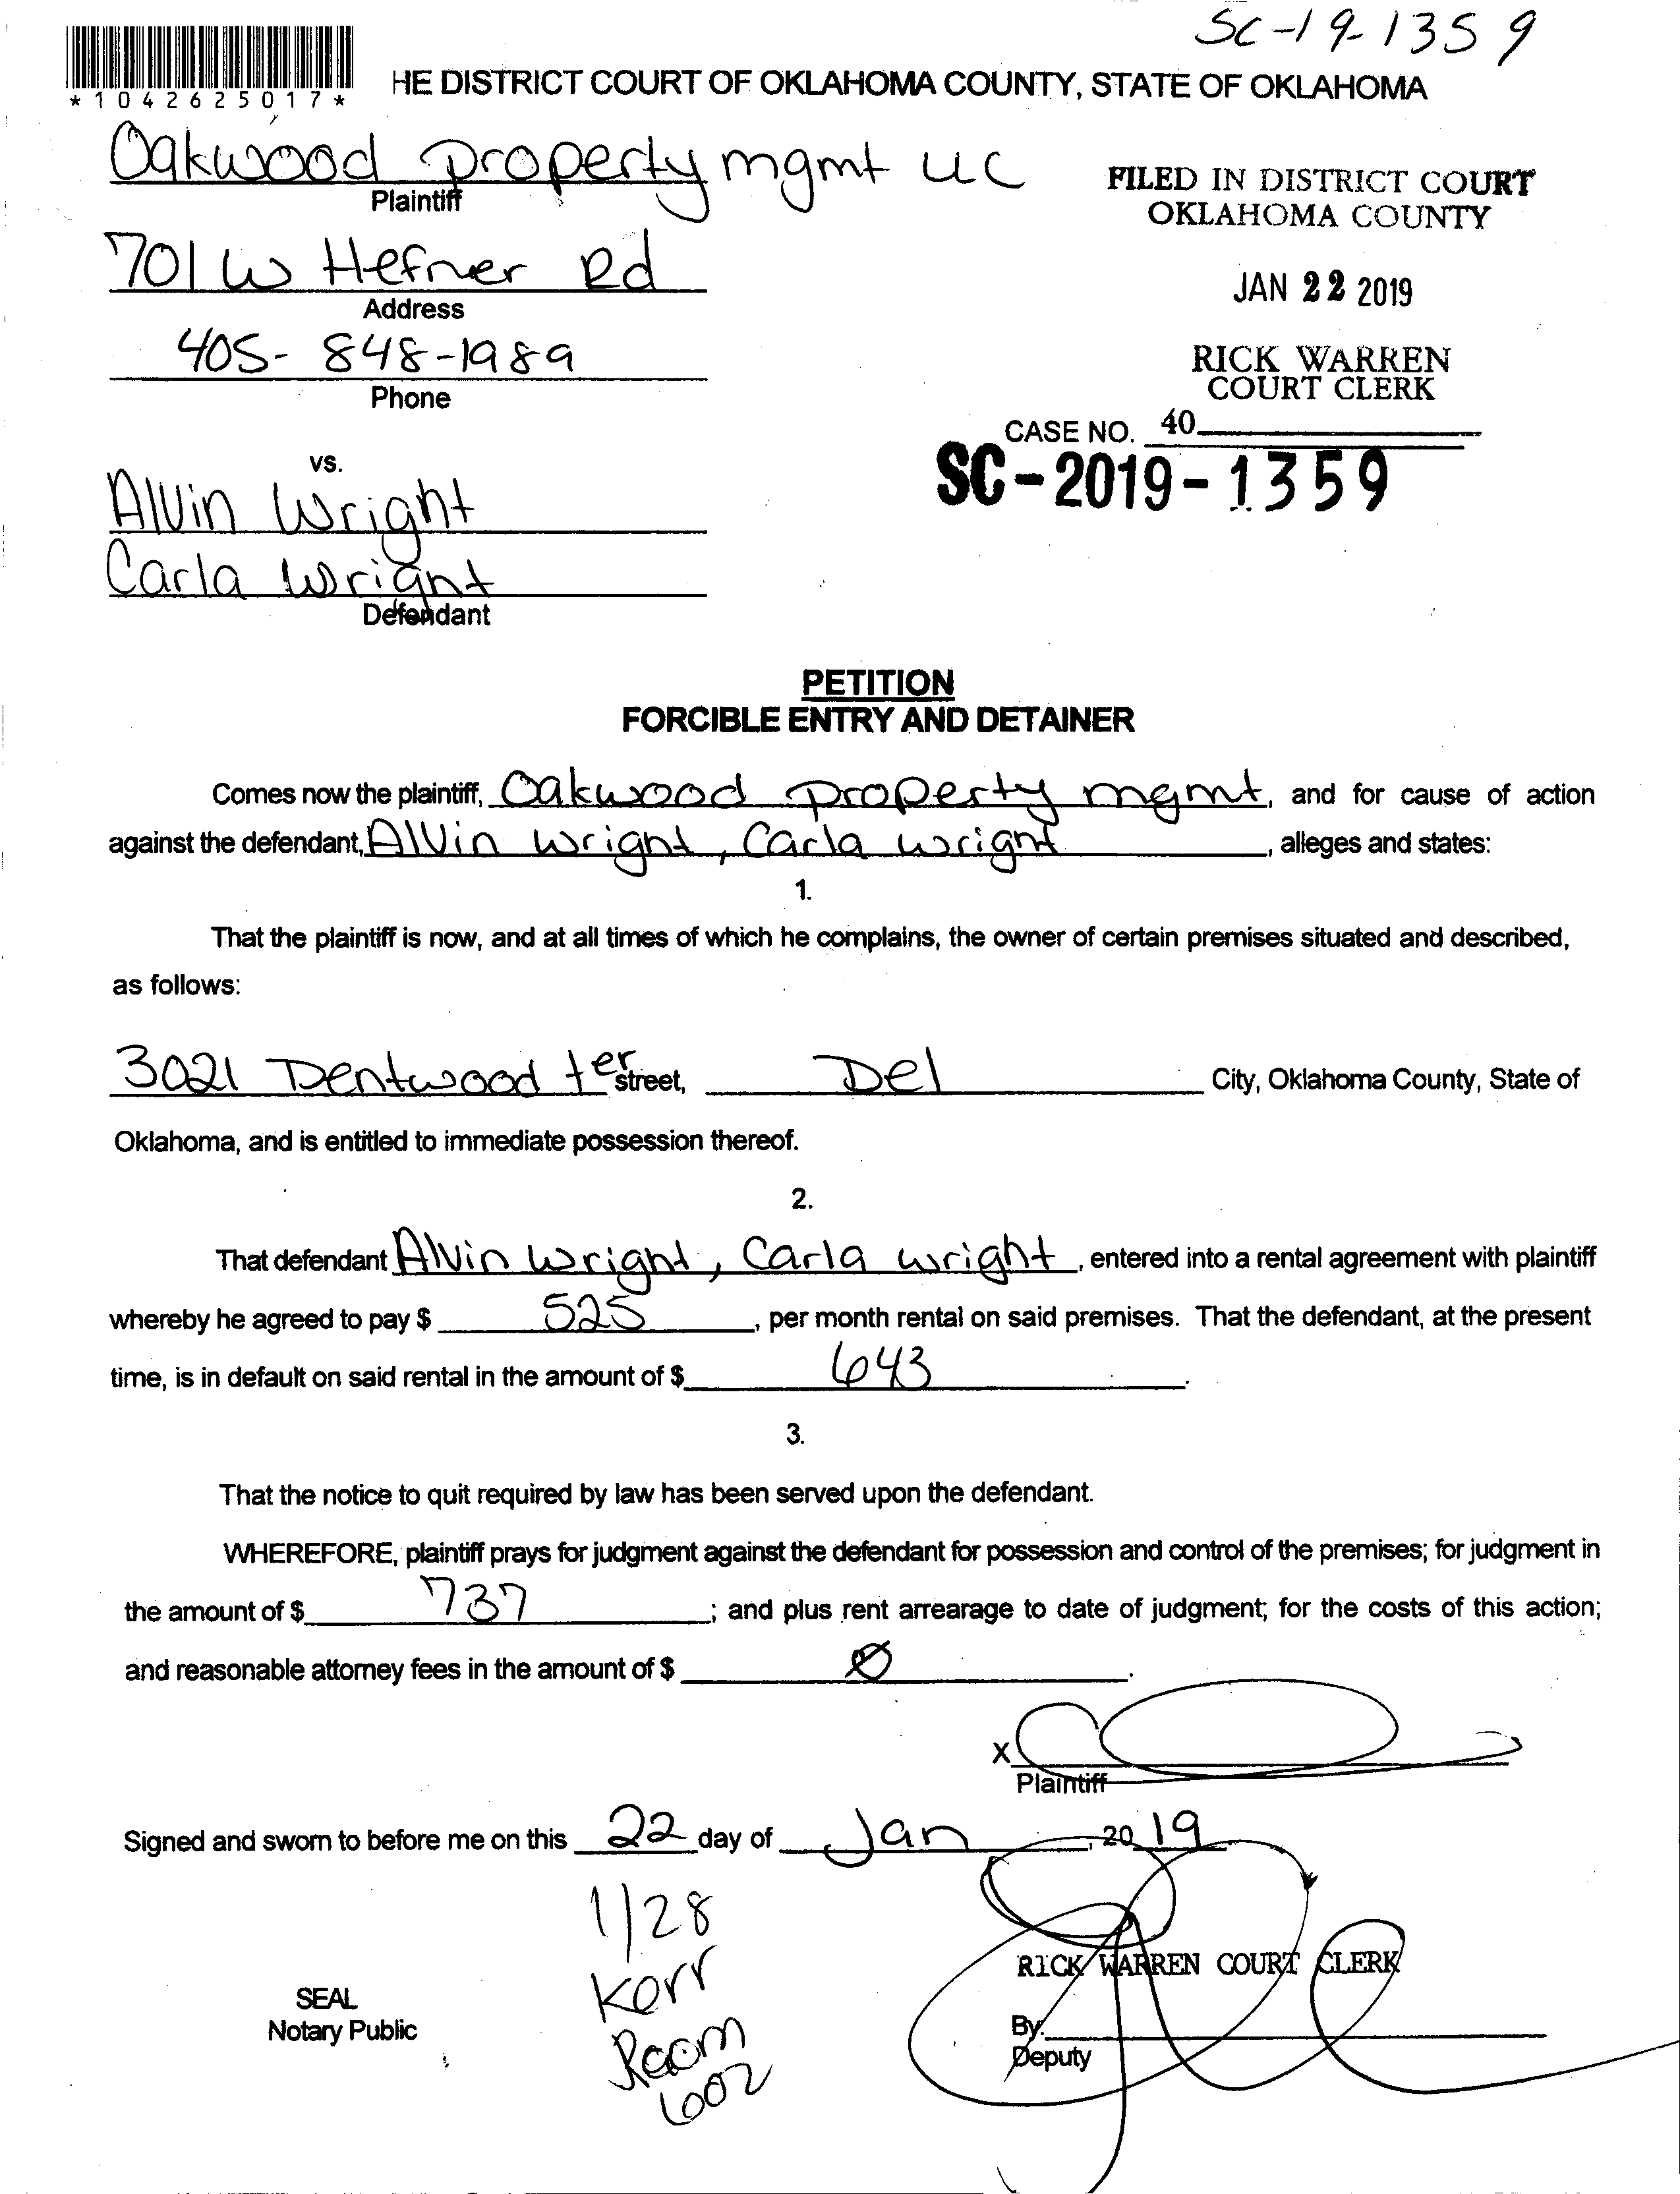 SC-19-1359
*1042625017*
HE DISTRICT COURT OF OKLAHOMA COUNTY, STATE OF OKLAHOMA
Oakwood property mgmt LLC
Plaintiff
FILED IN DISTRICT COURT
OKLAHOMA COUNTY
701 W Hefner Rd
Address
JAN 22 2019
405-848-1989
Phone
RICK WARREN
COURT CLERK
CASE NO. 40
SC-2019-1359
vs.
Alvin Wright
Carla Wright
Defendant
PETITION
FORCIBLE ENTRY AND DETAINER
Comes now the plaintiff, Oakwood property mgmt, and for cause of action
against the defendant, Alvin Wright, Carla Wright, alleges and states:
1.
That the plaintiff is now, and at all times of which he complains, the owner of certain premises situated and described,
as follows:
3021 Dentwood ter street, Del City, Oklahoma County, State of
Oklahoma, and is entitled to immediate possession thereof.
2.
That defendant Alvin Wright, Carla Wright, entered into a rental agreement with plaintiff
whereby he agreed to pay $ 525, per month rental on said premises. That the defendant, at the present
time, is in default on said rental in the amount of $ 643.
3.
That the notice to quit required by law has been served upon the defendant.
WHEREFORE, plaintiff prays for judgment against the defendant for possession and control of the premises; for judgment in
the amount of $ 737; and plus rent arrearage to date of judgment; for the costs of this action;
and reasonable attorney fees in the amount of $ Ø.
X
Plaintiff
Signed and sworn to before me on this 22 day of Jan, 20 19
1/28
Kerr
Room
602
RICK WARREN COURT CLERK
SEAL
Notary Public
By:
Deputy